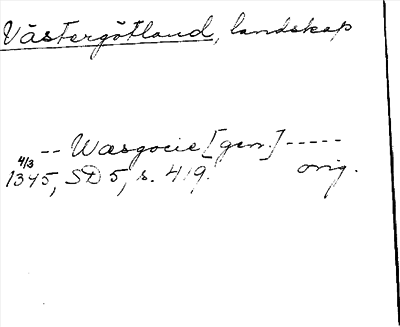 Västergötland, landskap
-- Wæsgocie [gen.] -----
4/3
1345, SD 5, s. 419. orig.